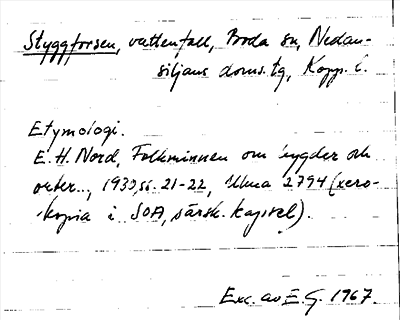 Styggforsen, vattenfall, Boda sn, Nedan-
siljans doms.tg, Kopp. l.
Etymologi.
E. H. Nord, Folkminnen om bygder och
orter.., 1930, ss. 21-22, Ulma 2794 (xero-
kopia i SOA, särsk. kapsel).
Exc. av E. G. 1967.